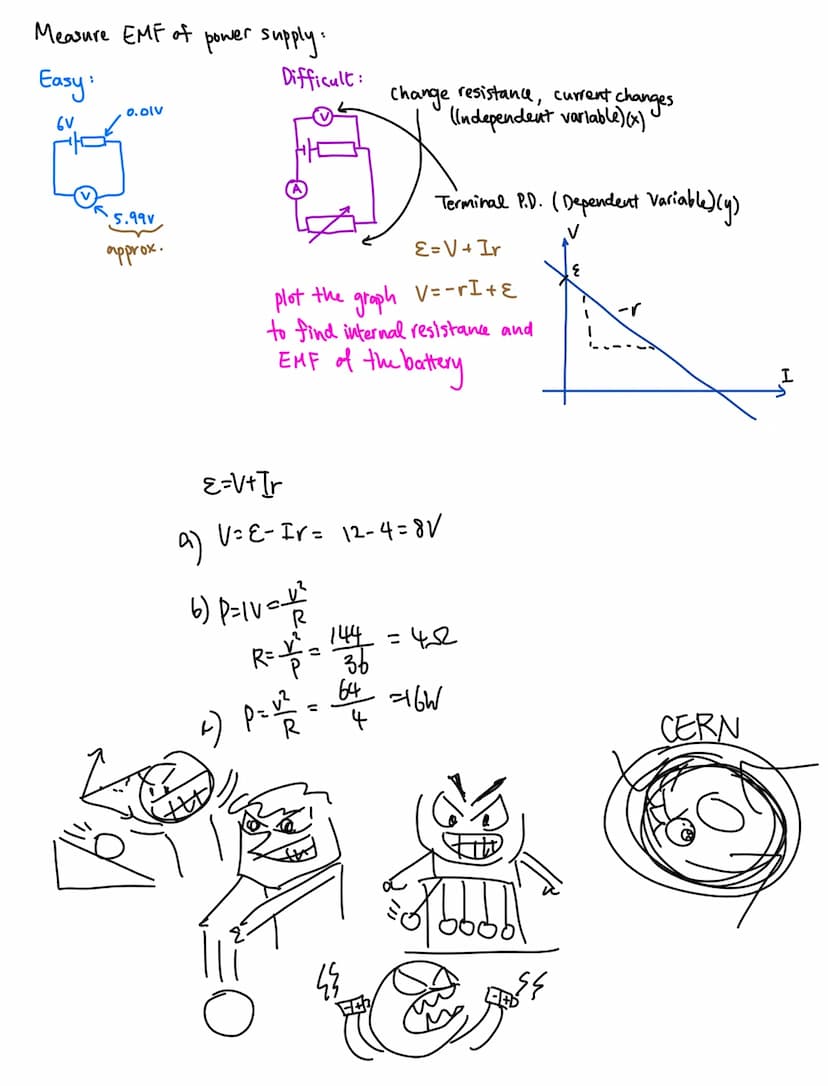 Measure EMF of power supply:
Easy:
6V
0.01V
V
5.99V
approx.
Difficult:
V
A
Change resistance, current changes
(Independent variable)(x)
Terminal P.D. (Dependent Variable)(y)
ε=V+Ir
V=-rI+ε
plot the graph
to find internal resistance and
EMF of the battery
V
ε
-r
I
ε=V+Ir
a) V=ε-Ir= 12-4=8V
b) P=IV=V²/R
R=V²/P=144/36=4Ω
c) P=V²/R=64/4=16W
CERN
-+
-+